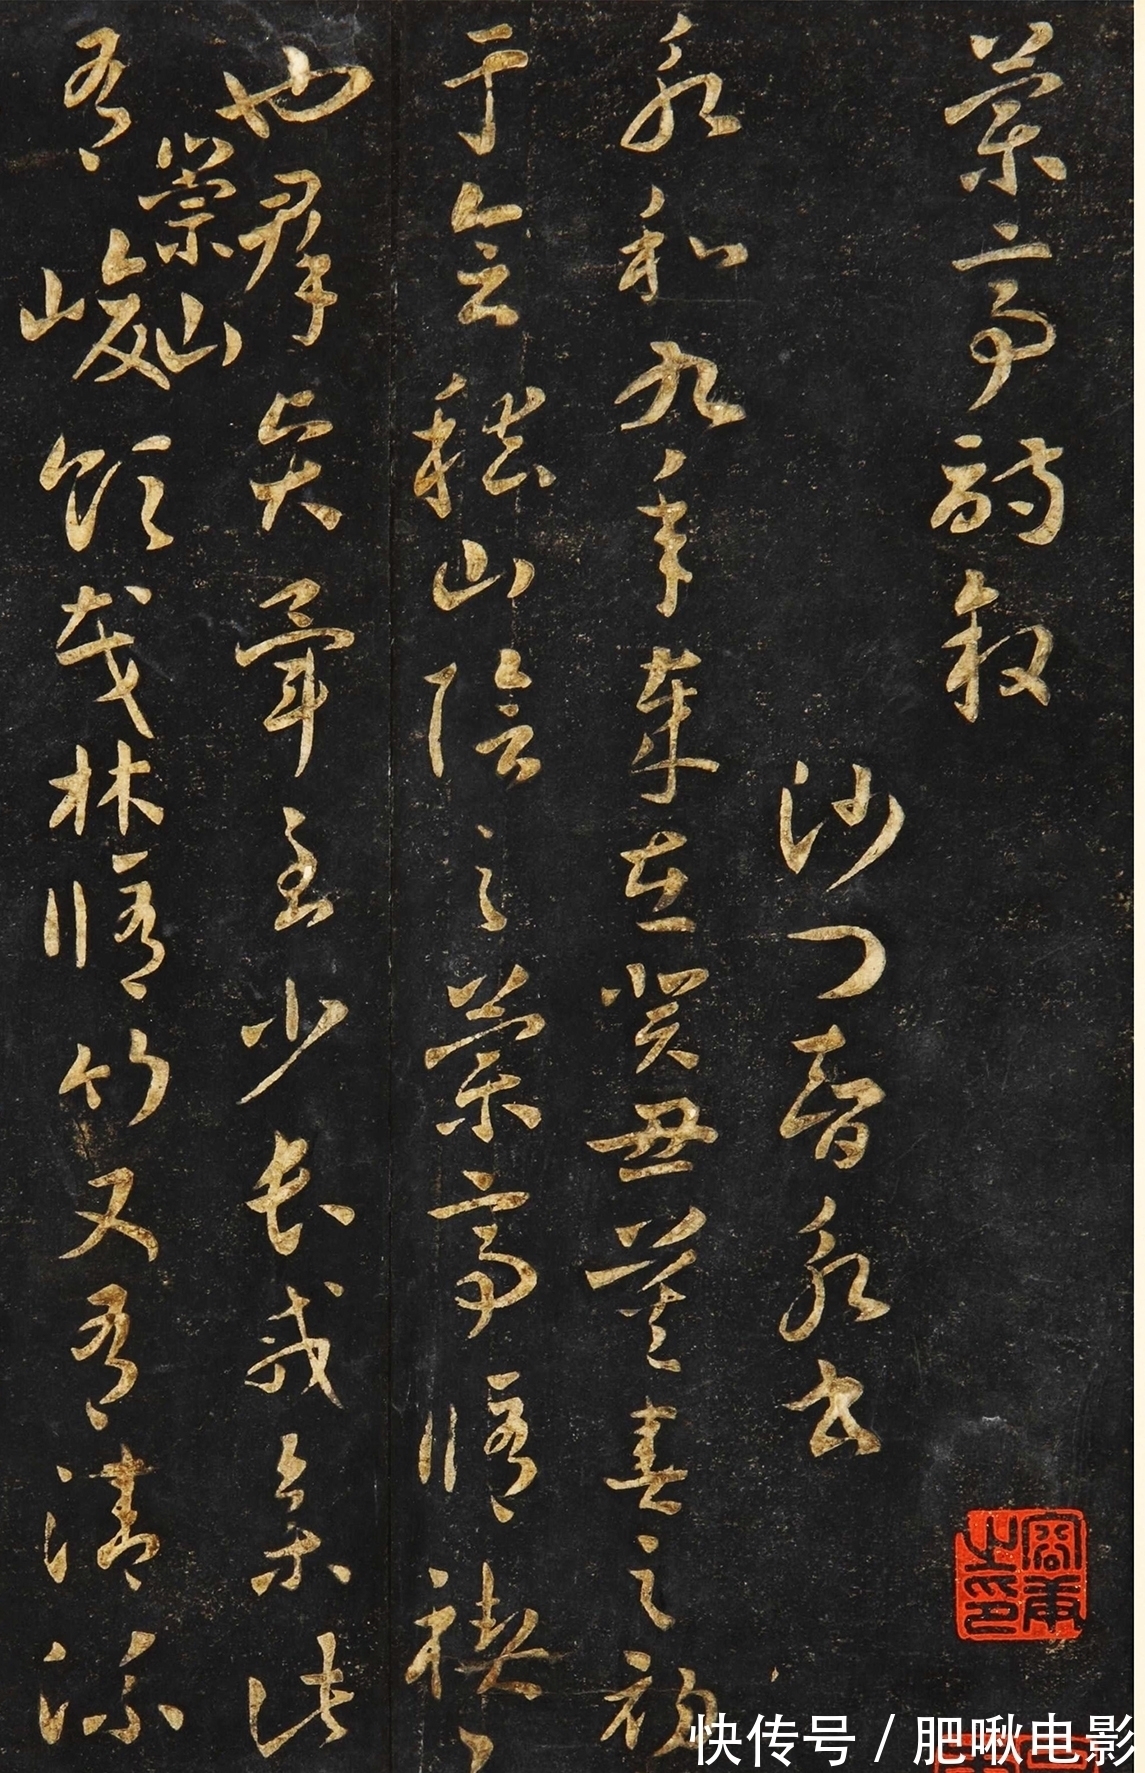 蘭亭詩敘
沙門智永書
永和九年歲在癸丑暮春之初
于會稽山陰之蘭亭脩禊
也群賢畢至少長咸集此
有崇山峻領茂林脩竹又有清流
快传号 / 肥啾电影